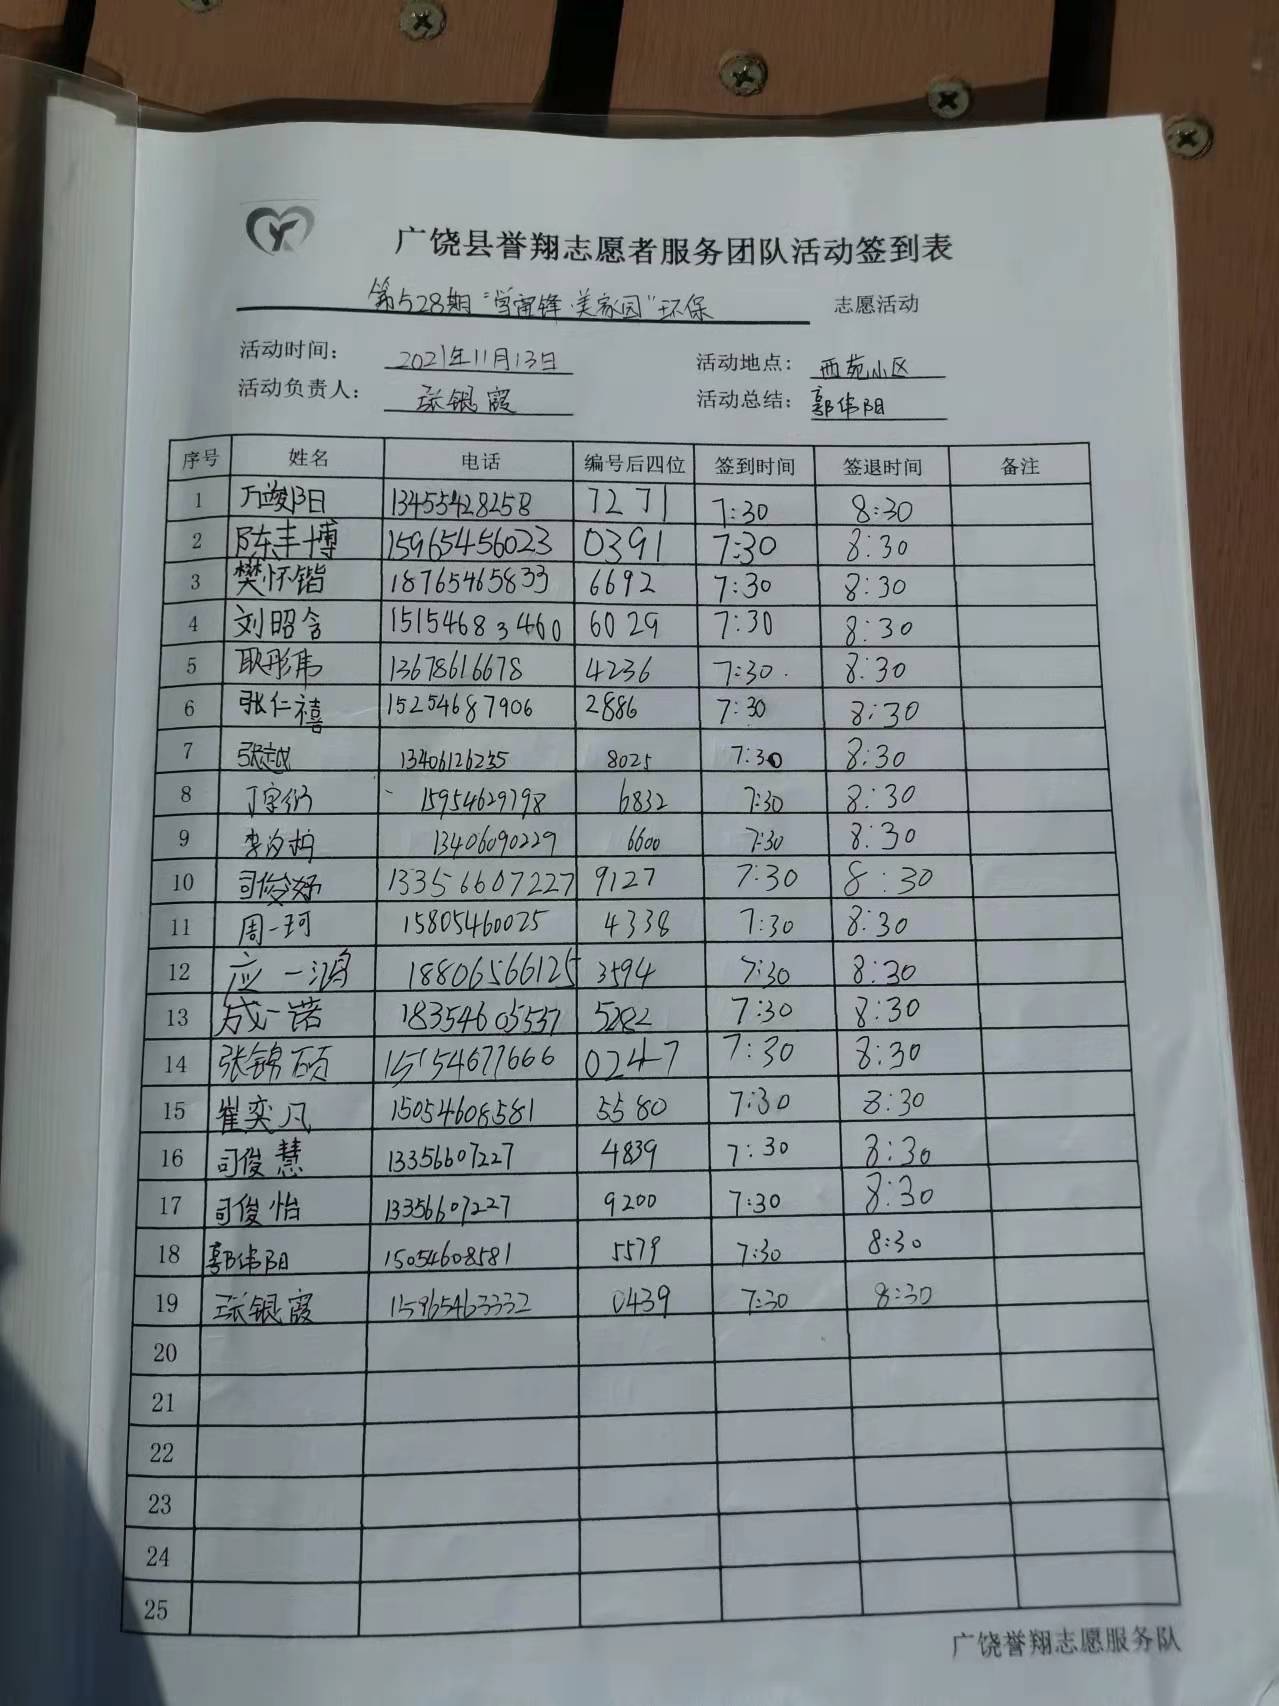 广饶县誉翔志愿者服务团队活动签到表
第528期"学雷锋·美家园"环保 志愿活动
活动时间: 2021年11月13日 活动地点: 西苑小区
活动负责人: 张银霞 活动总结: 郭伟阳
序号 姓名 电话 编号后四位 签到时间 签退时间 备注
1 13455428258 7271 7:30 8:30
2 陈丰博 15965456023 0391 7:30 8:30
3 樊怀锴 18765465833 6692 7:30 8:30
4 刘昭含 15154683460 6029 7:30 8:30
5 耿彤伟 13678616678 4236 7:30 8:30
6 张仁禧 15254687906 2886 7:30 8:30
7 张越 13406126235 8025 7:30 8:30
8 15954629798 6832 7:30 8:30
9 李汐柏 13406090229 6600 7:30 8:30
10 司俊好 13356607227 9127 7:30 8:30
11 周一珂 15805460025 4338 7:30 8:30
12 应一鸿 18806566125 3594 7:30 8:30
13 成一诺 18354605537 5282 7:30 8:30
14 张锦硕 15154677666 0247 7:30 8:30
15 崔奕凡 15054608581 5580 7:30 8:30
16 司俊慧 13356607227 4839 7:30 8:30
17 司俊怡 13356607227 9200 7:30 8:30
18 郭伟阳 15054608581 5579 7:30 8:30
19 张银霞 15965463332 0439 7:30 8:30
20
21
22
23
24
25
广饶誉翔志愿服务队